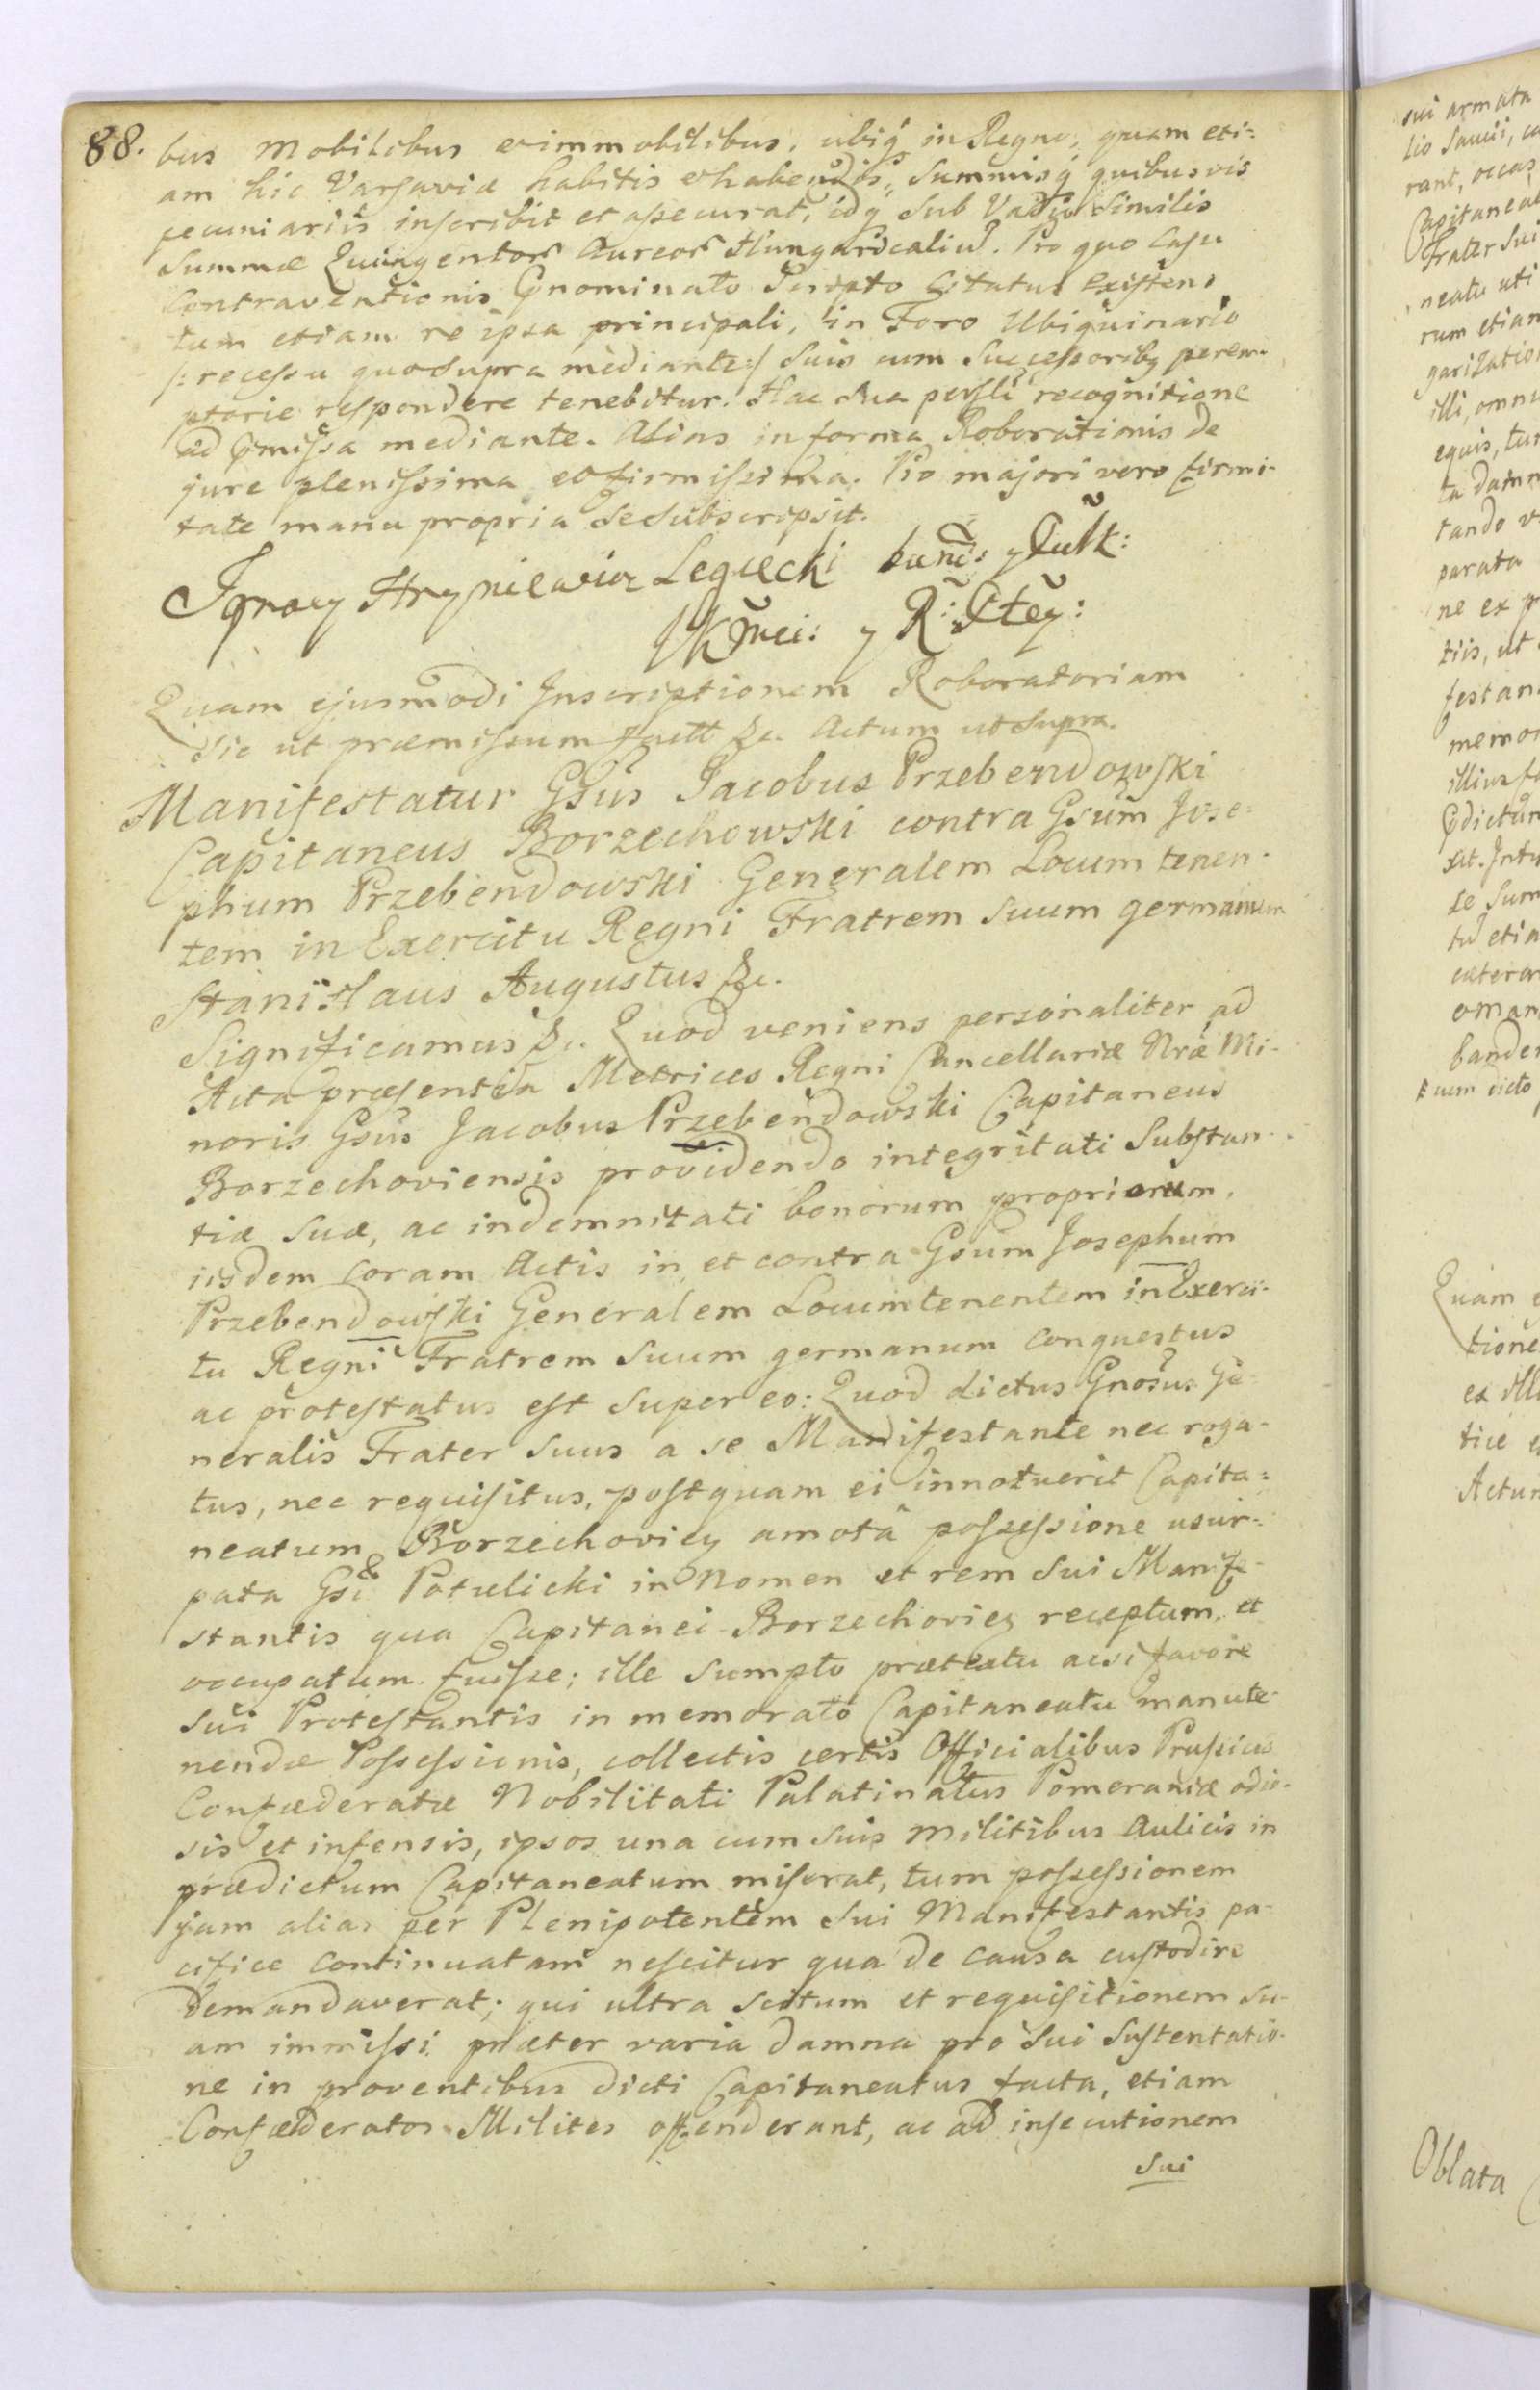 88.
bus Mobilibus et immobilibus, ubiq in Regno, quam eti=
am hic Varsaviæ habitis et habendis, Summisq quibusvis
pecuniariis inscribit et assecurat, idq Sub Vadio Similis
Summæ Quingentor Aureor Hungaricaliu. Pro quo Casu
Contraventionis Prænominato Scripto Citatus Existens
tum etiam re ipsa principali, in Foro Ubiquinario
/: recessu quo supra mediante :/ Suis cum Successoribq perem-
ptorie respondere tenebitur. Hac Sua persli recognitione
ad Præmissa mediante. Alias in forma Roborationis de
jure plenissima et firmissima. Pro majori vero firmi-
tate manu propria Se Subscripsit.
Ignacy Hryniewicz Legiecki
Quam ejusmodi Inscriptionem Roboratoriam
Sic ut præmissum factt &c. Actum ut Supra.
Manifestatur Gsus Jacobus Przebendowski
Capitaneus Borzechowski contra Gsum Jose-
phum Przebendowski Generalem Locum tenen-
tem in Exercitu Regni Fratrem Suum germanum
Stanislaus Augustus &c.
Significamus &c. Quod veniens personaliter ad
Acta præsentia Metrices Regni Cancellariæ Nræ Mi-
noris Gsus Jacobus Przebendowski Capitaneus
Borzechoviensis providendo integritati Substan-
tiæ Suæ, ac indemnitati bonorum propriorum,
iisdem Coram Actis in et contra Gsum Josephum
Przebendowski Generalem Locumtenentem in Exerci-
tu Regni Fratrem Suum germanum conquestus
ac protestatus est Super eo: Quod dictus Gnosus Ge-
neralis Frater Suus a se Manifestante nec roga-
tus, nec requisitus, postquam ei innotuerit Capita=
neatum Borzechovien amotâ possessione usur=
pata Gsi Potulicki in Nomen et rem Sui Manife-
stantis qua Capitanei Borzechovien receptum, et
occupatum fuisse; ille Sumpto prætextu acsi favore
Sui Protestantis in memorato Capitaneatu manute-
nendæ Possessionis, collectis certis Officialibus Prussicis
Confæderatæ Nobilitati Palatinatus Pomeraniæ odio-
sis et infensis, ipsos una cum Suis Militibus Aulicis in
prædictum Capitaneatum miserat, tum possessionem
jam alias per Plenipotentem Sui Manifestantis pa-
cifice Continuatam nescitur qua de Causa custodire
demandaverat; qui ultra Scitum et requisitionem Su-
am immissi præter varia damna pro Sui Sustentatio-
ne in proventibus dicti Capitaneatus facta, etiam
Confæderatos Milites offenderant, ac ad insecutionem
Sui
sui armata
rant, occas
Capitanea
Frater Sui
neatu uti
rum etiam
garizatio
equis, tum
tando v
parata
ne ex p
tiis, ut
festan
memor
se Sum
Quam e
tione
ex ill
Actum
Oblata